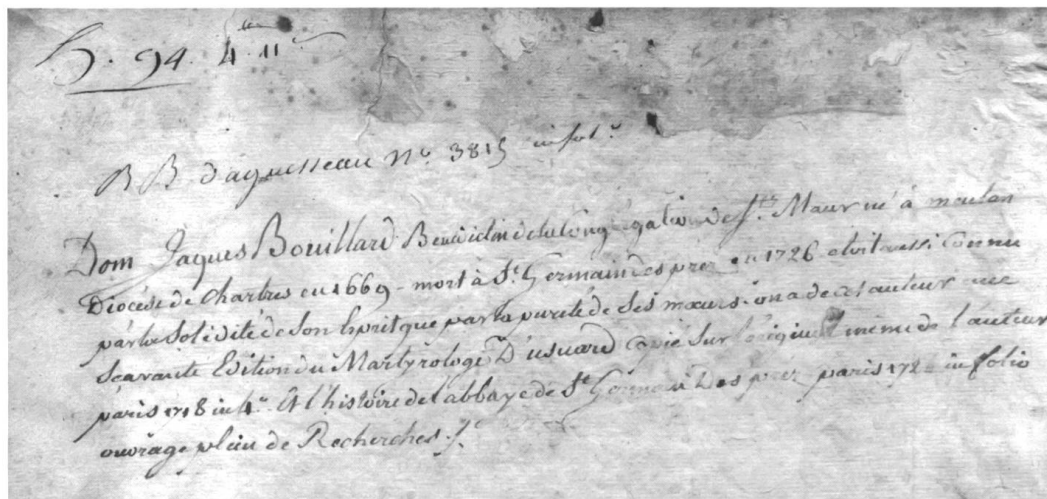 h. 94. 4tt 11
B B. Daguesseau No. 3815 in fol.o
Dom Jaques Bouillard Benedictin de la Congrégation de St. Maur né à meulan
Diocèse de Chartres en 1669 - mort à St. Germain des prez en 1726 etoit aussi Connu
par la solidité de son Esprit que par la pureté de ses mœurs. on a de cet auteur une
sçavante Edition du Martyrologe D'usuard copié sur l'original même de l'auteur
paris 1718 in 4o. Et l'histoire de l'abbaye de St Germain Des prez paris 172 in folio
ouvrage plein de Recherches.